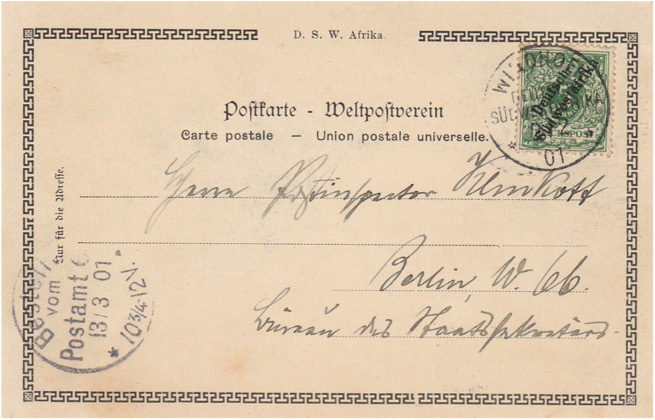 D. S. W. Afrika.
Postkarte - Weltpostverein
Carte postale — Union postale universelle.
Nur für die Adresse.
Herrn Postinspector Klinkott
Berlin W. 66.
Bureau des Staatssekretärs.
WINDHOEK
01
Deutsch-
Südwestafrika
Bestellt
vom
Postamt
13/3 01
10¾-12V.